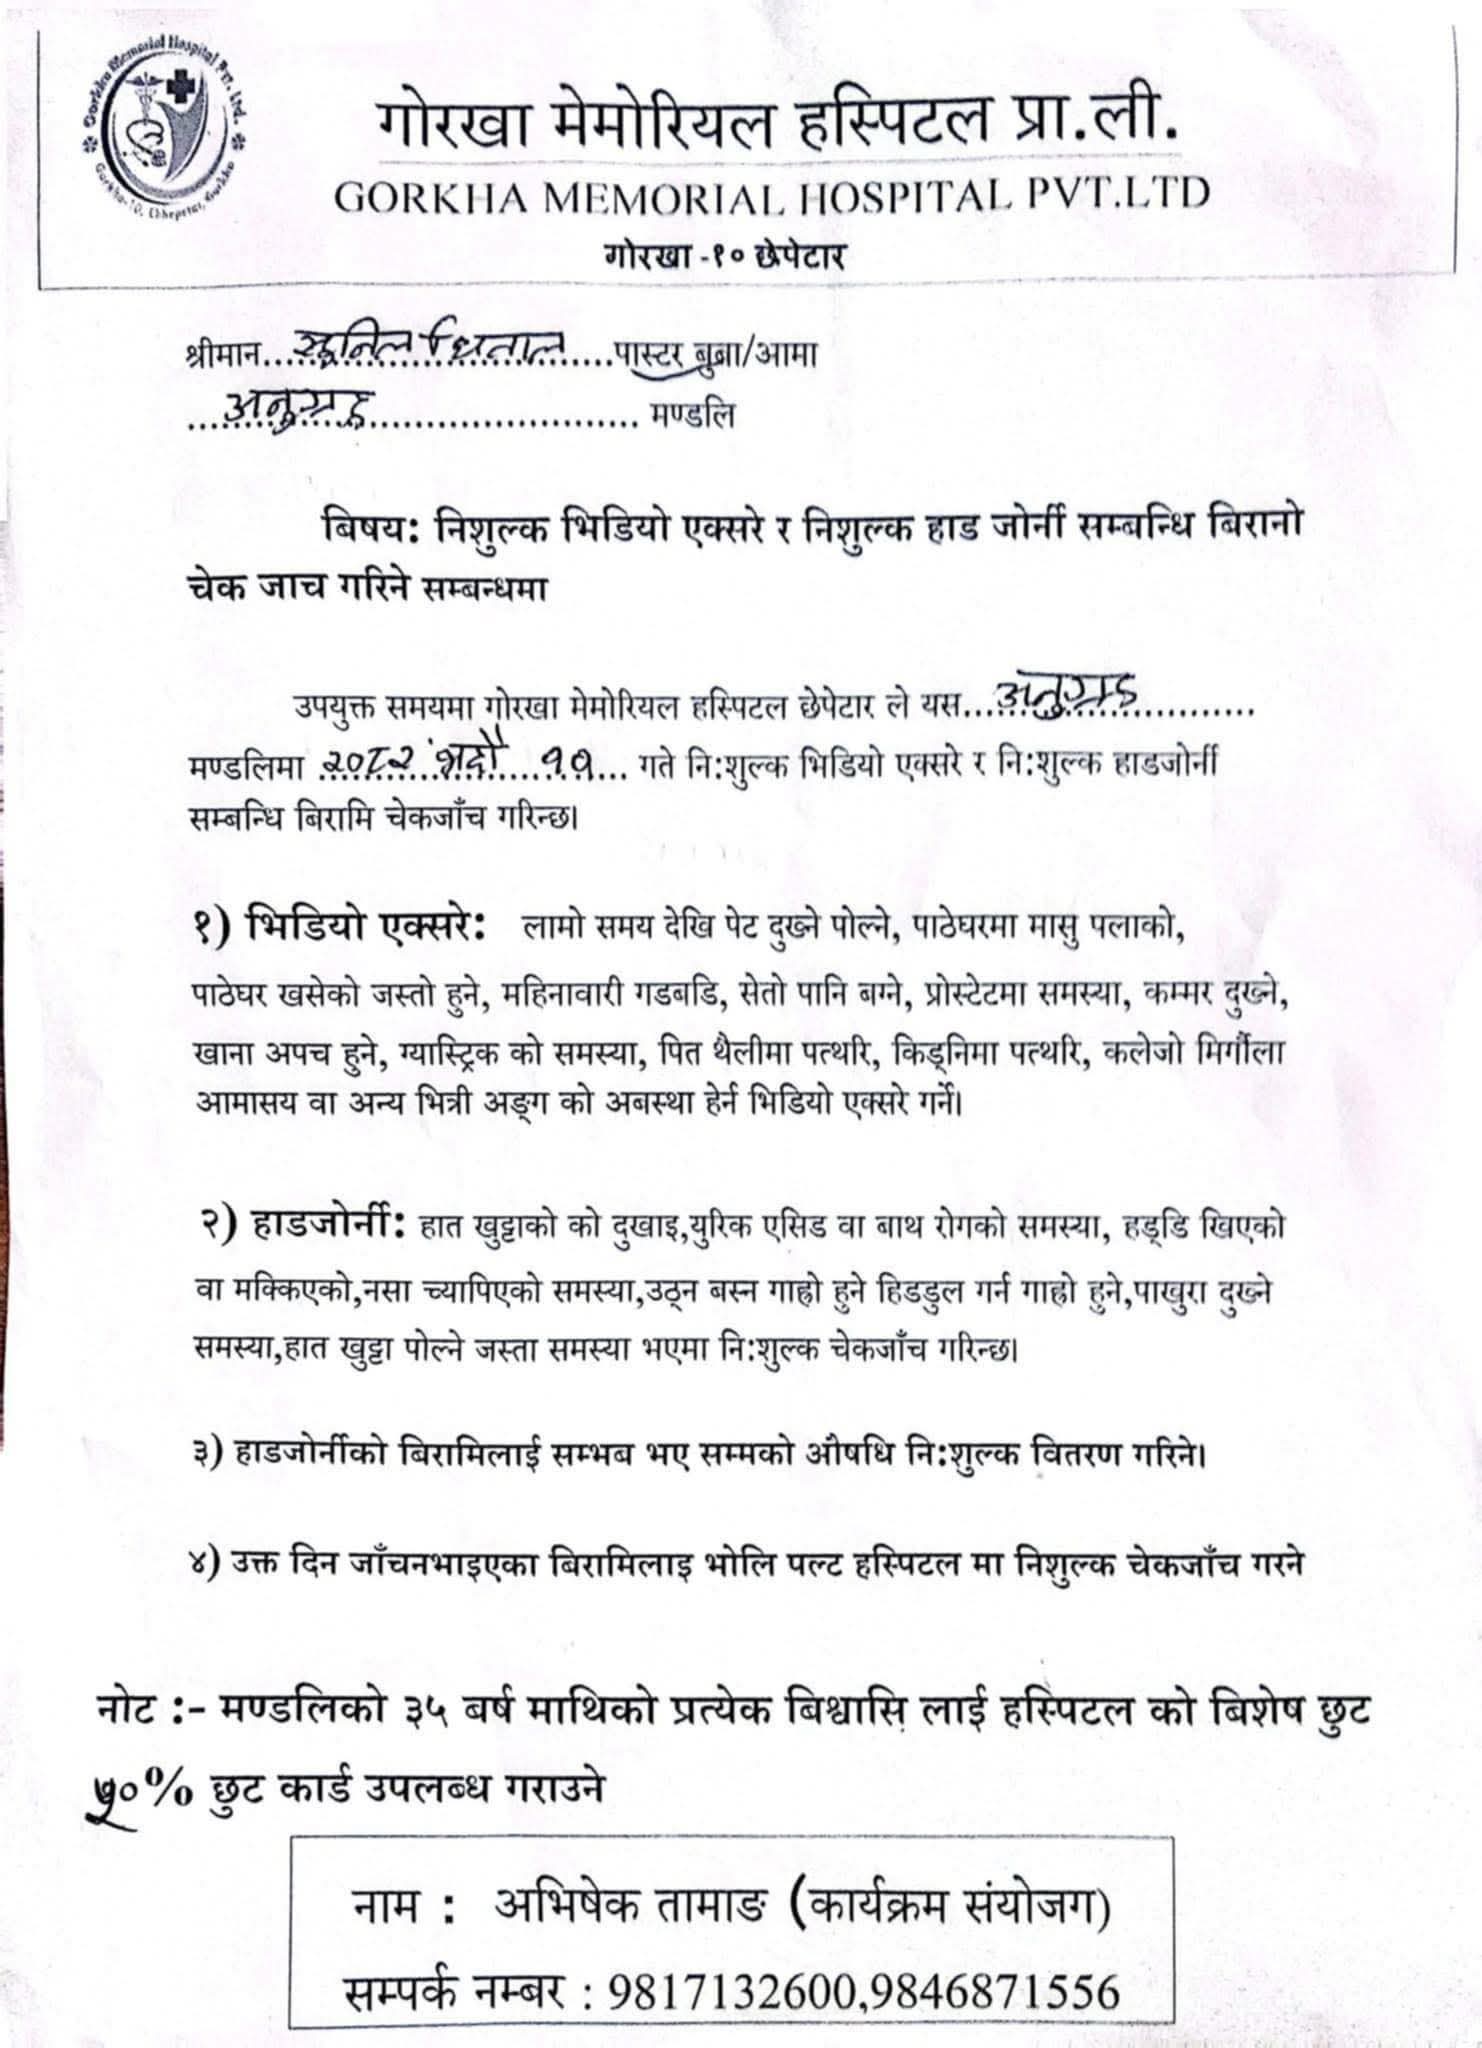 Gorkha Memorial Hospital Pvt. Ltd.
Gorkha-10, Chhepetar, Gorkha
गोरखा मेमोरियल हस्पिटल प्रा.ली.
GORKHA MEMORIAL HOSPITAL PVT.LTD
गोरखा -१० छेपेटार
श्रीमान.....सुनिल धिताल.....पास्टर बुबा/आमा
.....अनुग्रह..... मण्डलि
बिषय: निशुल्क भिडियो एक्सरे र निशुल्क हाड जोर्नी सम्बन्धि बिरानो
चेक जाच गरिने सम्बन्धमा
उपयुक्त समयमा गोरखा मेमोरियल हस्पिटल छेपेटार ले यस.....अनुग्रह.....
मण्डलिमा .२०८२ भदौ ११... गते नि:शुल्क भिडियो एक्सरे र नि:शुल्क हाडजोर्नी
सम्बन्धि बिरामि चेकजाँच गरिन्छ।
१) भिडियो एक्सरे: लामो समय देखि पेट दुख्ने पोल्ने, पाठेघरमा मासु पलाको,
पाठेघर खसेको जस्तो हुने, महिनावारी गडबडि, सेतो पानि बग्ने, प्रोस्टेटमा समस्या, कम्मर दुख्ने,
खाना अपच हुने, ग्यास्ट्रिक को समस्या, पित थैलीमा पत्थरि, किड्निमा पत्थरि, कलेजो मिर्गौला
आमासय वा अन्य भित्री अङ्ग को अबस्था हेर्न भिडियो एक्सरे गर्ने।
२) हाडजोर्नी: हात खुट्टाको को दुखाइ,युरिक एसिड वा बाथ रोगको समस्या, हड्डि खिएको
वा मक्किएको,नसा च्यापिएको समस्या,उठ्न बस्न गाह्रो हुने हिडडुल गर्न गाह्रो हुने,पाखुरा दुख्ने
समस्या,हात खुट्टा पोल्ने जस्ता समस्या भएमा नि:शुल्क चेकजाँच गरिन्छ।
३) हाडजोर्नीको बिरामिलाई सम्भब भए सम्मको औषधि नि:शुल्क वितरण गरिने।
४) उक्त दिन जाँचनभाइएका बिरामिलाइ भोलि पल्ट हस्पिटल मा निशुल्क चेकजाँच गरने
नोट :- मण्डलिको ३५ बर्ष माथिको प्रत्येक बिश्वासि लाई हस्पिटल को बिशेष छुट
५०% छुट कार्ड उपलब्ध गराउने
नाम : अभिषेक तामाङ (कार्यक्रम संयोजग)
सम्पर्क नम्बर : 9817132600,9846871556